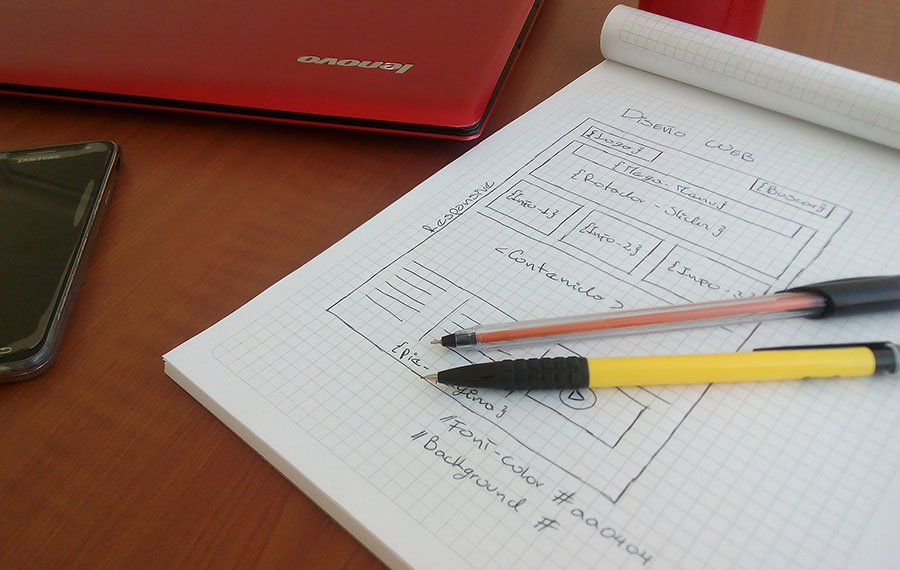 lenovo
SAMSUNG
Diseño WEB
{Logo}
{Buscar}
{Mega-Menu}
{Rotador - Slider}
Responsive
{Info-1}
{Info-2}
{Info-3}
<Contenido>
{Pie-
//Font-color #aa0404
//Background #